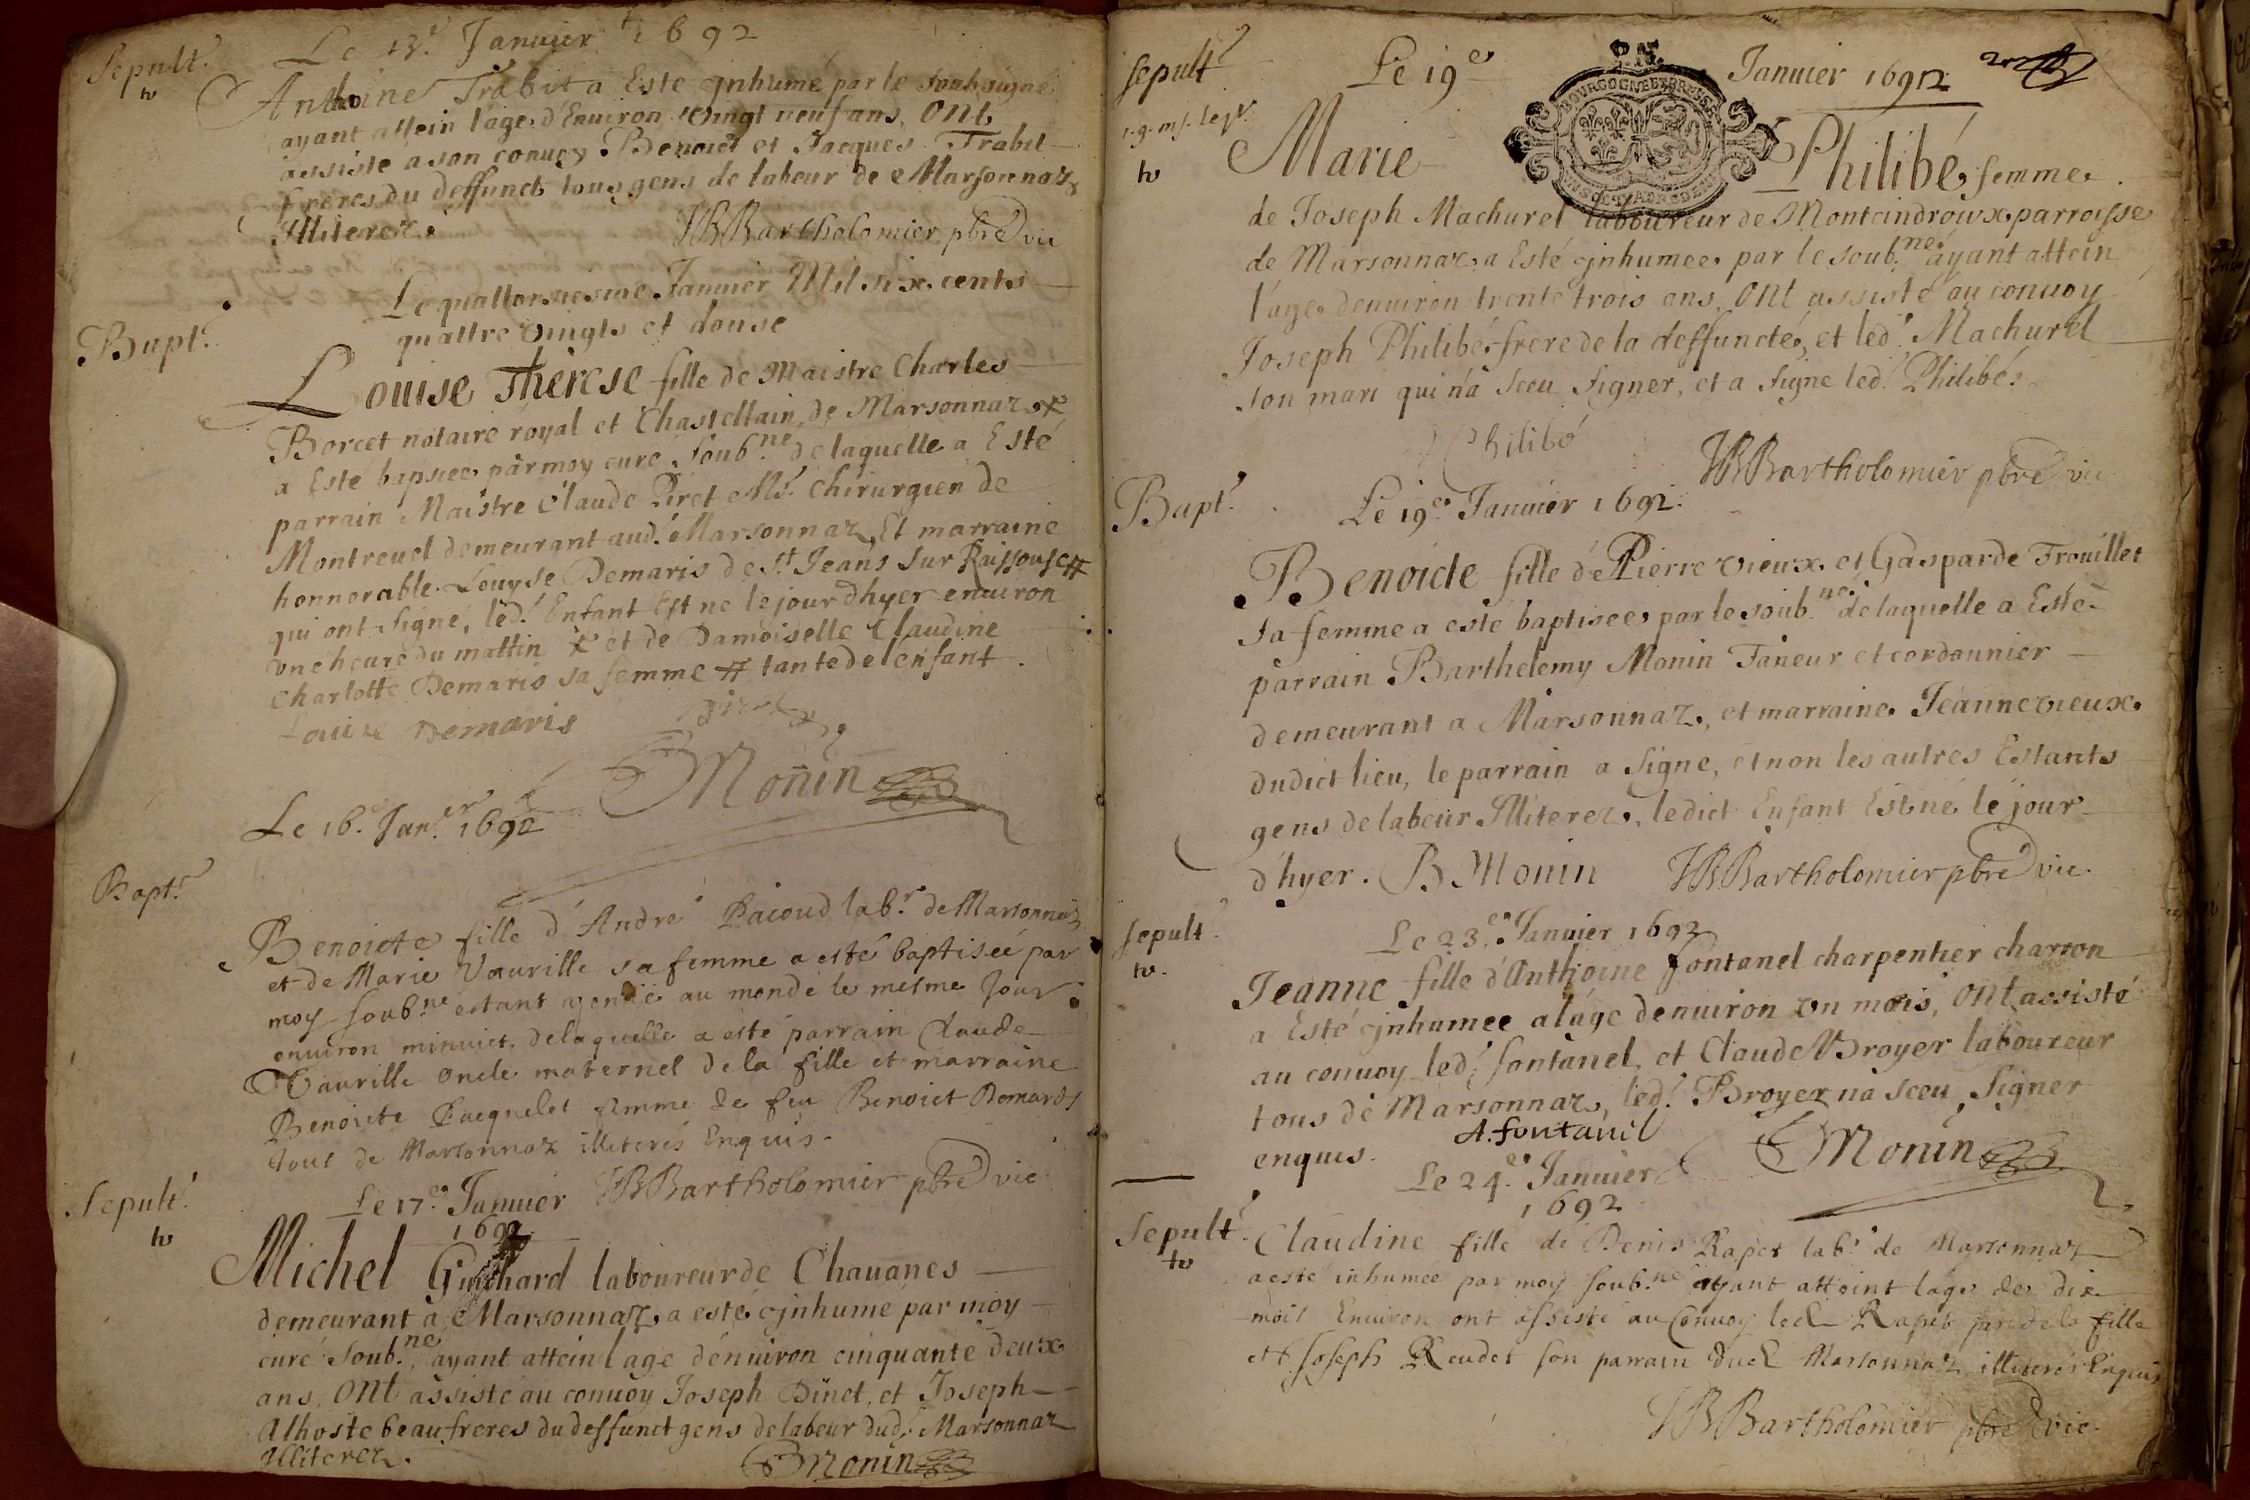 Sepult.
Le 13.e Januier 1692
Anthoine Trabit a Este jnhumé par le soubsigné
ayant attein l'age d'Enuiron vingt neuf ans, ont
assisté a son conuoy Benoict et Jacques Trabit
freres du deffunct tous gens de labeur de Marsonnaz
Illiterez.
JBBartholomier pbre vic
Bapt.
Le quattorziesme Januier Mil six cents
quattre vingts et douse
Louise Therese fille de Maistre Charles
Borcet notaire royal et Chastellain de Marsonnaz
a Esté baptisee par moy curé soub.né de laquelle a Esté
parrain Maistre Claude Piret M.e chirurgien de
Montreuel demeurant aud.t Marsonnaz, Et marraine
honnorable Louyse Demaris de S.t Jean sur Raissouse #
qui ont signé, led.t Enfant Est né le jour d'hyer enuiron
vne heure du mattin et de Damoiselle Claudine
Charlotte Demaris sa femme # tante de l'enfant.
Louize Demaris Piret
Monin
Le 16.e Jan.er 1692
Bapt.
Benoicte fille d'André Pacoud lab.r de Marsonnaz
et de Marie Vaurille sa femme a esté baptiseé par
moy soub.né estant venüe au monde le mesme jour
enuiron minuict, de laquelle a esté parrain Claude
Vaurille oncle maternel de la fille et marraine
Benoicte femme de feu Benoict Domards
tout de Marsonnaz illiterés Enquis.
JBBartholomier pbre vic
Sepult.
Le 17.e Januier
1692
Michel Guichard laboureur de Chauanes
demeurant a Marsonnaz, a esté jnhumé par moy
curé soub.né, ayant attein lage d'enuiron cinquante deux
ans, ont assisté au conuoy Joseph Dinet, et Joseph
Alhoste beaufreres du deffunct gens de labeur dud.t Marsonnaz
Illiterez.
Monin
Sepult
Le 19.e Januier 1692
BOURGOGNE ET BRESSE
Marie Philibé femme
de Joseph Machurel laboureur de Monteindroux parroisse
de Marsonnaz a Esté jnhumee par le soub.né ayant attein
l'age d'enuiron trente trois ans. Ont assisté au conuoy
Joseph Philibé frere de la deffuncte, et led.t Machurel
son mari qui n'a sceu signer, et a signé led.t Philibé.
Philibé
JBBartholomier pbre vic
Bapt.
Le 19.e Januier 1692.
Benoicte fille de Pierre vieux et Gasparde Trouillet
sa femme a esté baptisee par le soub.né de laquelle a Esté
parrain Barthelemy Monin Taneur et cordonnier
demeurant a Marsonnaz, et marraine Jeanne vieux
dudict lieu, le parrain a signé, et non les autres Estants
gens de labeur Illiterez, ledict Enfant Est né le jour
d'hyer. B Monin JBBartholomier pbre vic.
Sepult.
Le 23.e Januier 1692
Jeanne fille d'Anthoine Fontanel charpentier charron
a Esté jnhumee a l'age d'enuiron vn mois, ont assisté
au conuoy led.t fontanel, et Claude Broyer laboureur
tous de Marsonnaz, led.t Broyer n'a sceu signer
enquis.
A. fontanil
Monin
Le 24.e Januier
1692
Sepult.
Claudine fille de Denis Rapet lab.r de Marsonnaz
a esté inhumee par moy soub.né ayant attoint lage de dix
mois Enuiron ont assisté au conuoy led Rapet pere de la fille
et Joseph Reudet son parrain dud Marsonnaz illiterés Enquis
JBBartholomier pbre vic.